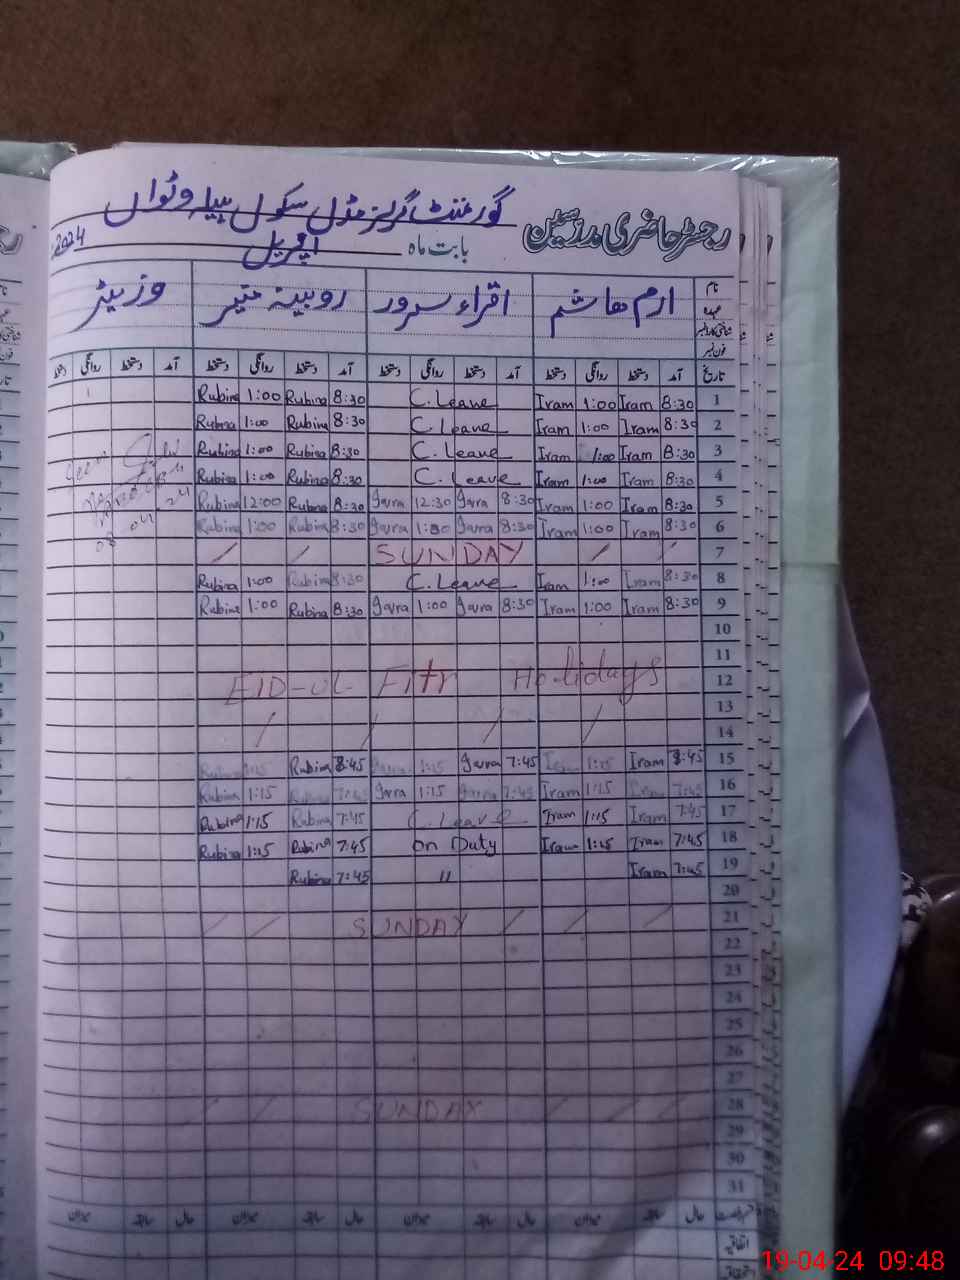 گورنمنٹ گرلز مڈل سکول پیلو وٹواں
رجسٹر حاضری مدرسین
بابت ماہ اپریل 2024
نام ارم ہاشم اقراء سرور روبینہ منیر وزیٹر
عہدہ
فون نمبر
تاریخ آمد دستخط روانگی دستخط آمد دستخط روانگی دستخط آمد دستخط روانگی دستخط آمد دستخط روانگی دستخط
Rubina 1:00 Rubina 8:30 C. Leave Iram 1:00 Iram 8:30 1
Rubina 1:00 Rubina 8:30 C. Leave Iram 1:00 Iram 8:30 2
Rubina 1:00 Rubina 8:30 C. Leave Iram 1:00 Iram 8:30 3
Rubina 1:00 Rubina 8:30 C. Leave Iram 1:00 Iram 8:30 4
Rubina 12:00 Rubina 8:30 Iqra 12:30 Iqra 8:30 Iram 1:00 Iram 8:30 5
Rubina 1:00 Rubina 8:30 Iqra 1:00 Iqra 8:30 Iram 1:00 Iram 8:30 6
08.04.24
/ / SUNDAY / / 7
Rubina 1:00 Rubina 8:30 C. Leave Iram 1:00 Iram 8:30 8
Rubina 1:00 Rubina 8:30 Iqra 1:00 Iqra 8:30 Iram 1:00 Iram 8:30 9
10
11
EID-UL Fitr Holidays 12
13
/ / / / 14
Rubina 1:15 Rubina 8:45 Iqra 1:15 Iqra 7:45 Iram 1:15 Iram 8:45 15
Rubina 1:15 Rubina 7:45 Iqra 1:15 Iqra 7:45 Iram 1:15 Iram 7:45 16
Rubina 1:15 Rubina 7:45 C. Leave Iram 1:15 Iram 7:45 17
Rubina 1:15 Rubina 7:45 on Duty Iram 1:15 Iram 7:45 18
Rubina 7:45 " Iram 7:45 19
20
/ / SUNDAY / / / 21
22
23
24
25
26
27
/ / SUNDAY / / / 28
29
30
31
میزان سابقہ حال میزان سابقہ حال میزان سابقہ حال میزان سابقہ حال
اتفاقیہ
19-04-24 09:48